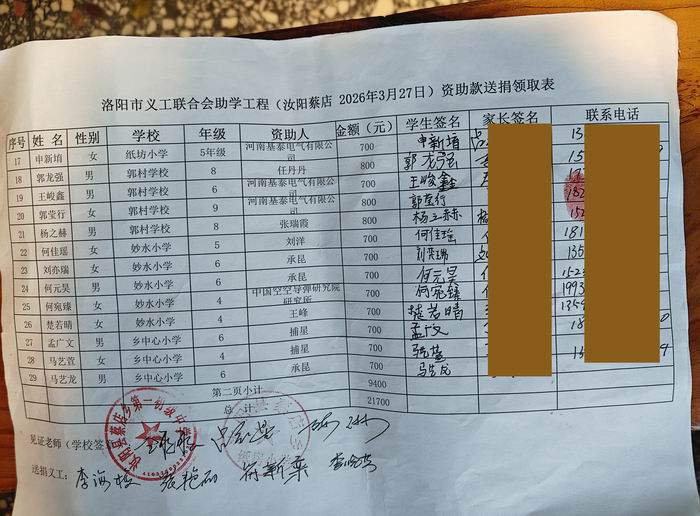 洛阳市义工联合会助学工程（汝阳蔡店 2026年3月27日）资助款送捐领取表
序号 姓 名 性别 学校 年级 资助人 金额（元） 学生签名 家长签名 联系电话
17 申新堉 女 纸坊小学 5年级 河南基泰电气有限公司 700 申新堉 13
18 郭龙强 男 郭村学校 8 任丹丹 800 郭龙强 15
19 王峻鑫 男 郭村学校 6 河南基泰电气有限公司 700 王峻鑫
20 郭莹行 女 郭村学校 9 河南基泰电气有限公司 800 郭莹行 182
21 杨之赫 男 郭村学校 8 张瑞霞 800 杨之赫 152
22 何佳瑶 女 妙水小学 5 刘洋 700 何佳瑶 181
23 刘亦瑞 女 妙水小学 6 承昆 700 135
24 何元昊 男 妙水小学 6 承昆 700 何元昊 152
25 何宛臻 女 妙水小学 4 中国空空导弹研究院研究所 700 何宛臻 1993
26 楚若晴 女 妙水小学 4 王峰 700 楚若晴 1359
27 孟广文 男 乡中心小学 6 捕星 700 孟广文 18
28 马艺萱 女 乡中心小学 4 捕星 700 13
29 马艺龙 男 乡中心小学 6 承昆 700 马艺龙
第二页小计 9400
总 计 21700
见证老师（学校签章
送捐义工：